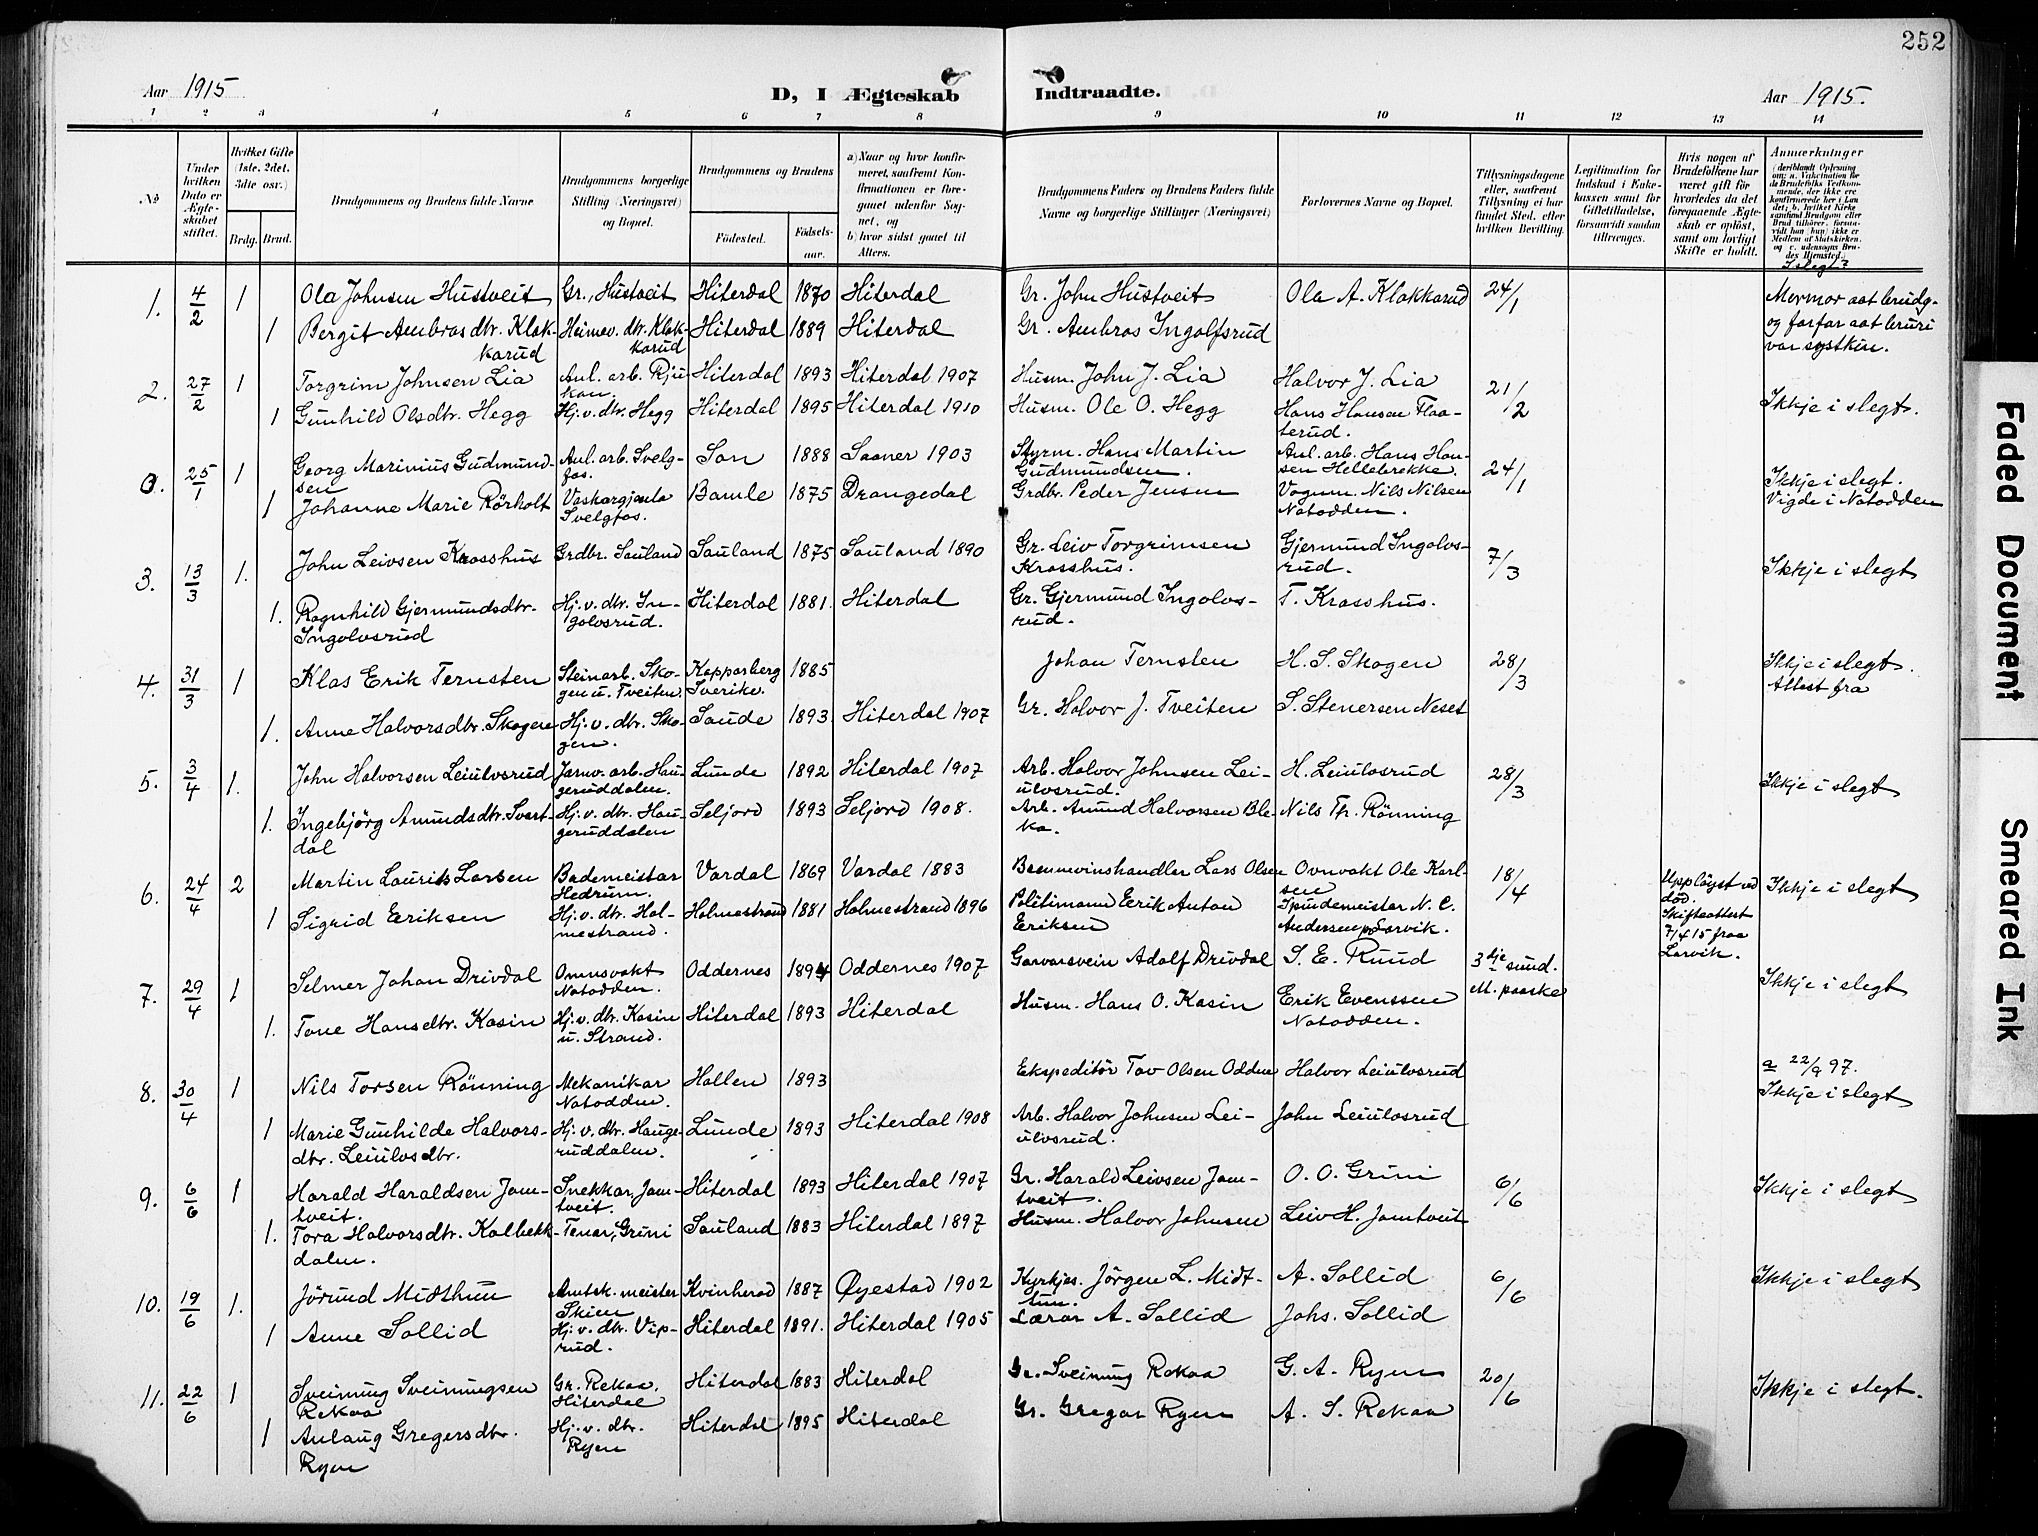 252
Aar 1915
D, I Ægteskab Indtraadte.
Aar 1915.
1 2 3 4 5 6 7 8 9 10 11 12 13 14
No
Under hvilken Dato er Ægteskabet stiftet.
Hvilket Gifte (1ste, 2det, 3die osv.)
Brdg. Brud.
Brudgommens og Brudens fulde Navne
Brudgommens borgerlige Stilling (Næringsvei) og Bopæl.
Brudgommens og Brudens
Fødested.
Fødselsaar.
a) Naar og hvor konfirmeret, saafremt Konfirmationen er foregaaet udenfor Sognet, og
b) hvor sidst gaaet til Alters.
Brudgommens Faders og Brudens Faders fulde Navne og borgerlige Stillinger (Næringsvei)
Forlovernes Navne og Bopæl.
Tillysningsdagene eller, saafremt Tillysning ei har fundet Sted, efter hvilken Bevilling.
Legitimation for Indskud i Enkekassen samt for Giftetilladelse, forsaavidt saadan tiltrænges.
Hvis nogen af Brudefolkene har været gift før hvorledes da det foregaaende Ægteskab er opløst, samt om lovligt Skifte er holdt.
Anmærkninger
(deriblandt Oplysning om: a. Vakcination for de Brudefolks Vedkommende, der ikke ere konfirmerede her i Landet; b. hvilket Kirkesamfund Brudgom eller Brud tilhører, forsaavidt han (hun) ikke er Medlem af Statskirken, og c. udensogns Brudes Hjemsted.)
I slegt?
1. 4/2 1 Ola Johnsen Hustveit Gr., Hustveit Hiterdal 1870 Hiterdal Gr. John Hustveit Ola A. Klakkarud 24/1 Mormor aat brudg. og farfar aat bruri var syskin.
1 Bergit Ambrosdtr. Klakkarud Heimev. dtr. Klakkarud Hiterdal 1889 Hiterdal Gr. Ambros Ingolfsrud
2. 27/2 1 Torgrim Johnsen Lia Anl. arb. Rjukan. Hiterdal 1893 Hiterdal 1907 Husm. John J. Lia Halvor J. Lia 21/2 Ikkje i slegt.
1 Gunhild Olsdtr. Hegg Hj. v. dtr. Hegg Hiterdal 1895 Hiterdal 1910 Husm. Ole O. Hegg Hans Hansen Flaaterud.
0. 25/1 1 Georg Marinius Gudmundsen Anl. arb. Svelgfos. Son 1888 Saaner 1903 Styrm. Hans Martin Gudmundsen. Anl. arb. Hans Hansen Hellebrekke. 24/1 Ikkje i slegt. Vigde i Notodden
1 Johanne Marie Rörholt Vaskargjenta Svelgfos. Bamle 1875 Drangedal Grdbr. Peder Jensen Vognm. Nils Nilsen Notodden.
3. 13/3 1. John Leivsen Krosshus Grdbr. Sauland Sauland 1875 Sauland 1890 Gr. Leiv Torgrimsen Krosshus. Gjermund Ingolvsrud. 7/3 Ikkje i slegt
1. Ragnhild Gjermundsdtr. Ingolvsrud Hj. v. dtr. Ingolvsrud. Hiterdal 1881. Hiterdal Gr. Gjermund Ingolvsrud. T. Krosshus.
4. 31/3 1 Klas Erik Ternsten Steinarb. Skogen u. Tveiten. Kopparberg Sverike. 1885 Johan Ternsten H. S. Skogen 28/3 Ikkje i slegt. Attest fra
1. Anne Halvorsdtr. Skogen Hj. v. dtr. Skogen. Saude 1893. Hiterdal 1907 Gr. Halvor J. Tveiten S. Stenersen Neset
5. 3/4 1. John Halvorsen Leiulvsrud Jarnv. arb. Haugeruddalen. Lunde 1892 Hiterdal 1907 Arb. Halvor Johnsen Leiulvsrud. H. Leiulvsrud 28/3 Ikkje i slegt
1. Ingebjörg Amundsdtr. Svartdal Hj. v. dtr. Haugeruddalen Seljord 1893 Seljord 1908. Arb. Amund Halvorsen Bleka. Nils Th. Rönning
6. 24/4 2 Martin Laurits Larsen Bademeistar Hedrum. Vardal 1869 Vardal 1883 Brennevinshandler Lars Olsen Ovnvakt Ole Karlsen 18/4 Upplöyst ved död. Skifteattest 7/4 15 fraa Larvik. Ikkje i slegt
1 Sigrid Eriksen Hj. v. dtr. Holmestrand. Holmestrand 1881 Holmestrand 1896 Politimann Erik Anton Eriksen N. C. Andersen Larvik.
7. 29/4 1 Selmer Johan Drivdal Omnsvakt Notodden. Oddernes 1894 Oddernes 1907 Garvarsvein Adolf Drivdal S. E. Ruud 3dje sund. M. paaske Ikkje i slegt
1. Tone Hansdtr. Kasin Hj. v. dtr. Kasin u. Strand. Hiterdal 1893 Hiterdal Husm. Hans O. Kasin Erik Evenssen Notodden.
8. 30/4 1 Nils Torsen Rönning Mekanikar Notodden. Hollen 1893 Ekspeditör Tov Olsen Odden Halvor Leiulvsrud a 22/9 97. Ikkje i slegt
1 Marie Gunhilde Halvorsdtr. Leiulvsdtr. Hj. v. dtr. Haugeruddalen. Lunde 1893 Hiterdal 1908 Arb. Halvor Johnsen Leiulvsrud. John Leiulvsrud
9. 6/6 1 Harald Haraldsen Jamtveit. Snekkar, Jamtveit. Hiterdal 1893 Hiterdal 1907 Gr. Harald Leivsen Jamtveit. O. O. Grini 6/6 Ikkje i slegt
1. Tora Halvorsdtr. Kalbekkdalen. Tenar, Grini Sauland 1883 Hiterdal 1897 Husm. Halvor Johnsen Leiv H. Jamtveit
10. 19/6 1. Jörund Midthun Amtsk. meister Skien Kvinherad 1887 Øyestad 1902 Kyrkjes. Jörgen L. Midttun. A. Sollid 6/6 Ikkje i slegt
1 Anne Sollid Hj. v. dtr. Viprud. Hiterdal 1891. Hiterdal 1905 Lærar A. Sollid Johs. Sollid
11. 22/6 1 Sveinung Sveinungsen Rekaa Gr. Rekaa, Hiterdal Hiterdal 1883 Hiterdal Gr. Sveinung Rekaa G. A. Ryen 20/6 Ikkje i slegt.
1 Anlaug Gregersdtr. Ryen Hj. v. dtr. Ryen Hiterdal 1895 Hiterdal Gr. Gregar Ryen A. S. Rekaa
Faded Document
Smeared Ink